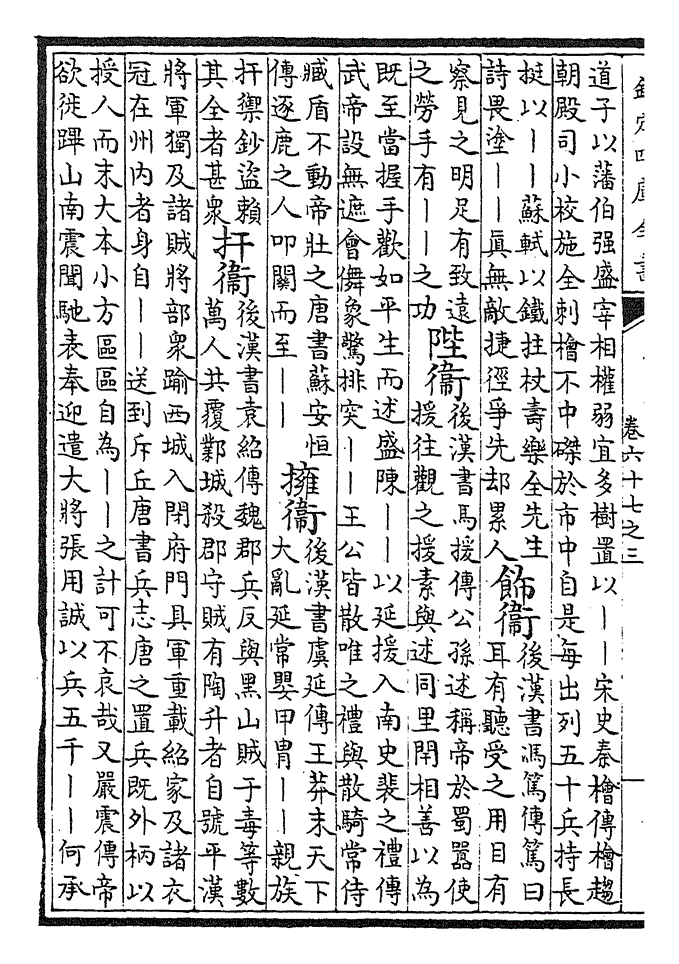 欽定四庫全書
卷六十七之三
道子以藩伯强盛宰相權弱宜多樹置以丨丨宋史秦檜傳檜趨
朝殿司小校施全刺檜不中磔於市中自是每出列五十兵持長
挺以丨丨蘇軾以鐵拄杖壽樂全先生
詩畏塗丨丨眞無敵捷徑爭先却累人
飾衞
後漢書馮篤傳篤曰
耳有聽受之用目有
察見之明足有致遠
之勞手有丨丨之功
陛衞
後漢書馬援傳公孫述稱帝於蜀囂使
援往觀之援素與述同里閈相善以為
既至當握手歡如平生而述盛陳丨丨以延援入南史裴之禮傳
武帝設無遮會儛象驚排突丨丨王公皆散唯之禮與散騎常侍
臧盾不動帝壯之唐書蘇安恒
傳逐鹿之人叩關而至丨丨
擁衞
後漢書虞延傳王莽末天下
大亂延常嬰甲胄丨丨親族
扞禦鈔盜賴
其全者甚衆
扞衞
後漢書袁紹傳魏郡兵反與黑山賊于毒等數
萬人共覆鄴城殺郡守賊有陶升者自號平漢
將軍獨及諸賊將部衆踰西城入閉府門具軍重載紹家及諸衣
冠在州内者身自丨丨送到斥丘唐書兵志唐之置兵既外柄以
授人而末大本小方區區自為丨丨之計可不哀哉又嚴震傳帝
欲徙蹕山南震聞馳表奉迎遣大將張用誠以兵五千丨丨何承